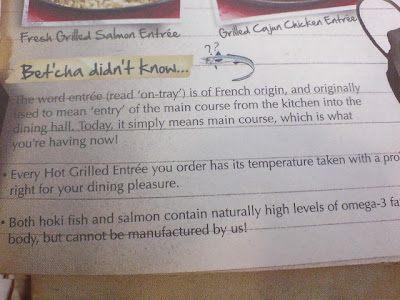 Fresh Grilled Salmon Entrée
Grilled Cajun Chicken Entrée
Bet'cha didn't know...
??
The word entrée (read 'on-tray') is of French origin, and originally
used to mean 'entry' of the main course from the kitchen into the
dining hall. Today, it simply means main course, which is what
you're having now!
• Every Hot Grilled Entrée you order has its temperature taken with a pro
right for your dining pleasure.
• Both hoki fish and salmon contain naturally high levels of omega-3 fa
body, but cannot be manufactured by us!